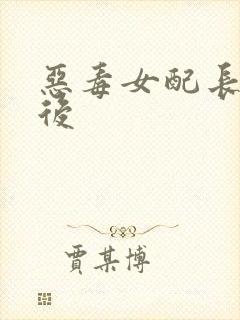 惡毒女配長
後
賈某博